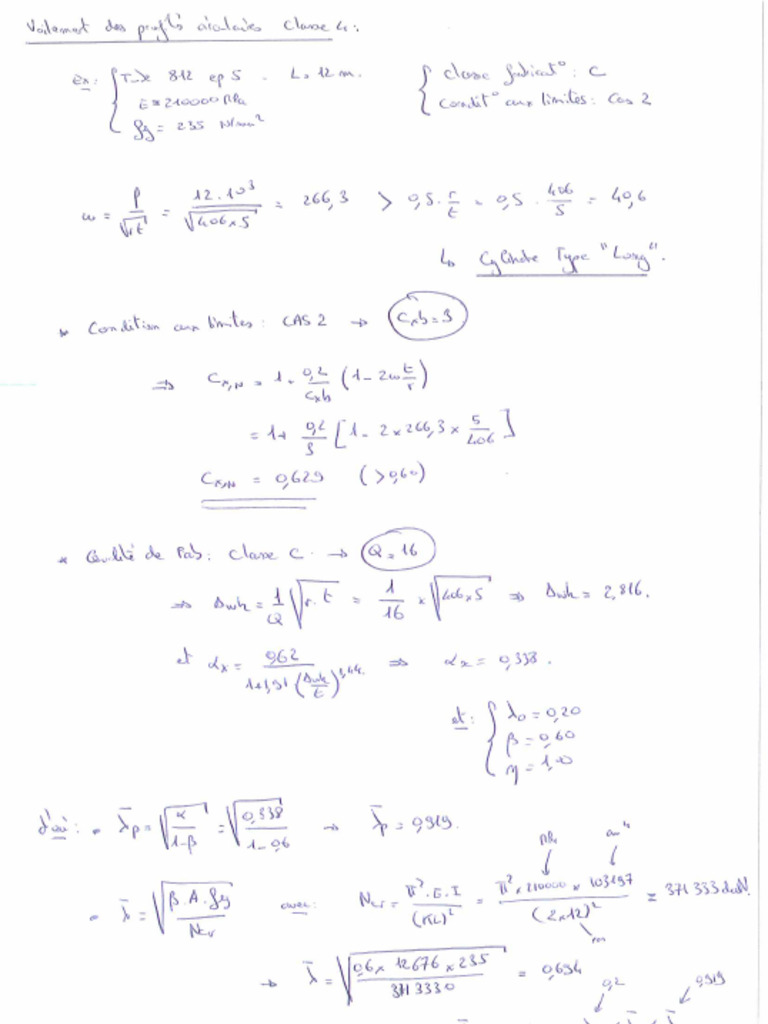 Voilement des profilés circulaires Classe 4 :
ex : { Tube 812 ep 5 . L = 12 m. { Classe fabricat° : C
E = 210000 MPa Condit° aux limites : Cas 2
fy = 235 N/mm²
ω = ℓ/√(r.t) = 12.10³/√(406×5) = 266,3 > 0,5.r/t = 0,5 . 406/5 = 40,6
↳ Cylindre Type "Long".
* Condition aux limites : CAS 2 → Cxb = 3
⇒ Cx,N = 1 + 0,2/Cxb (1 - 2ω t/r)
= 1 + 0,2/3 [1 - 2×266,3× 5/406]
Cx,N = 0,629 (> 0,60)
* Qualité de Fab : Classe C → Q = 16
⇒ Δwk = 1/Q √(r.t) = 1/16 × √(406×5) ⇒ Δwk = 2,816.
et αx = 0,62/(1+1,91(Δwk/t)^1,44) ⇒ αx = 0,338.
et : { λo = 0,20
β = 0,60
η = 1,00
d'où : • λ̄p = √(α/(1-β)) = √(0,338/(1-0,6)) → λ̄p = 0,919.
MPa cm⁴
• λ̄ = √(β.A.fy/Ncr) avec : Ncr = π².E.I/(KL)² = π² × 210000 × 103197/(2×12)² = 371 333 daN.
m
→ λ̄ = √(0,6 × 12676 × 235/3713330) = 0,694
0,2 0,919